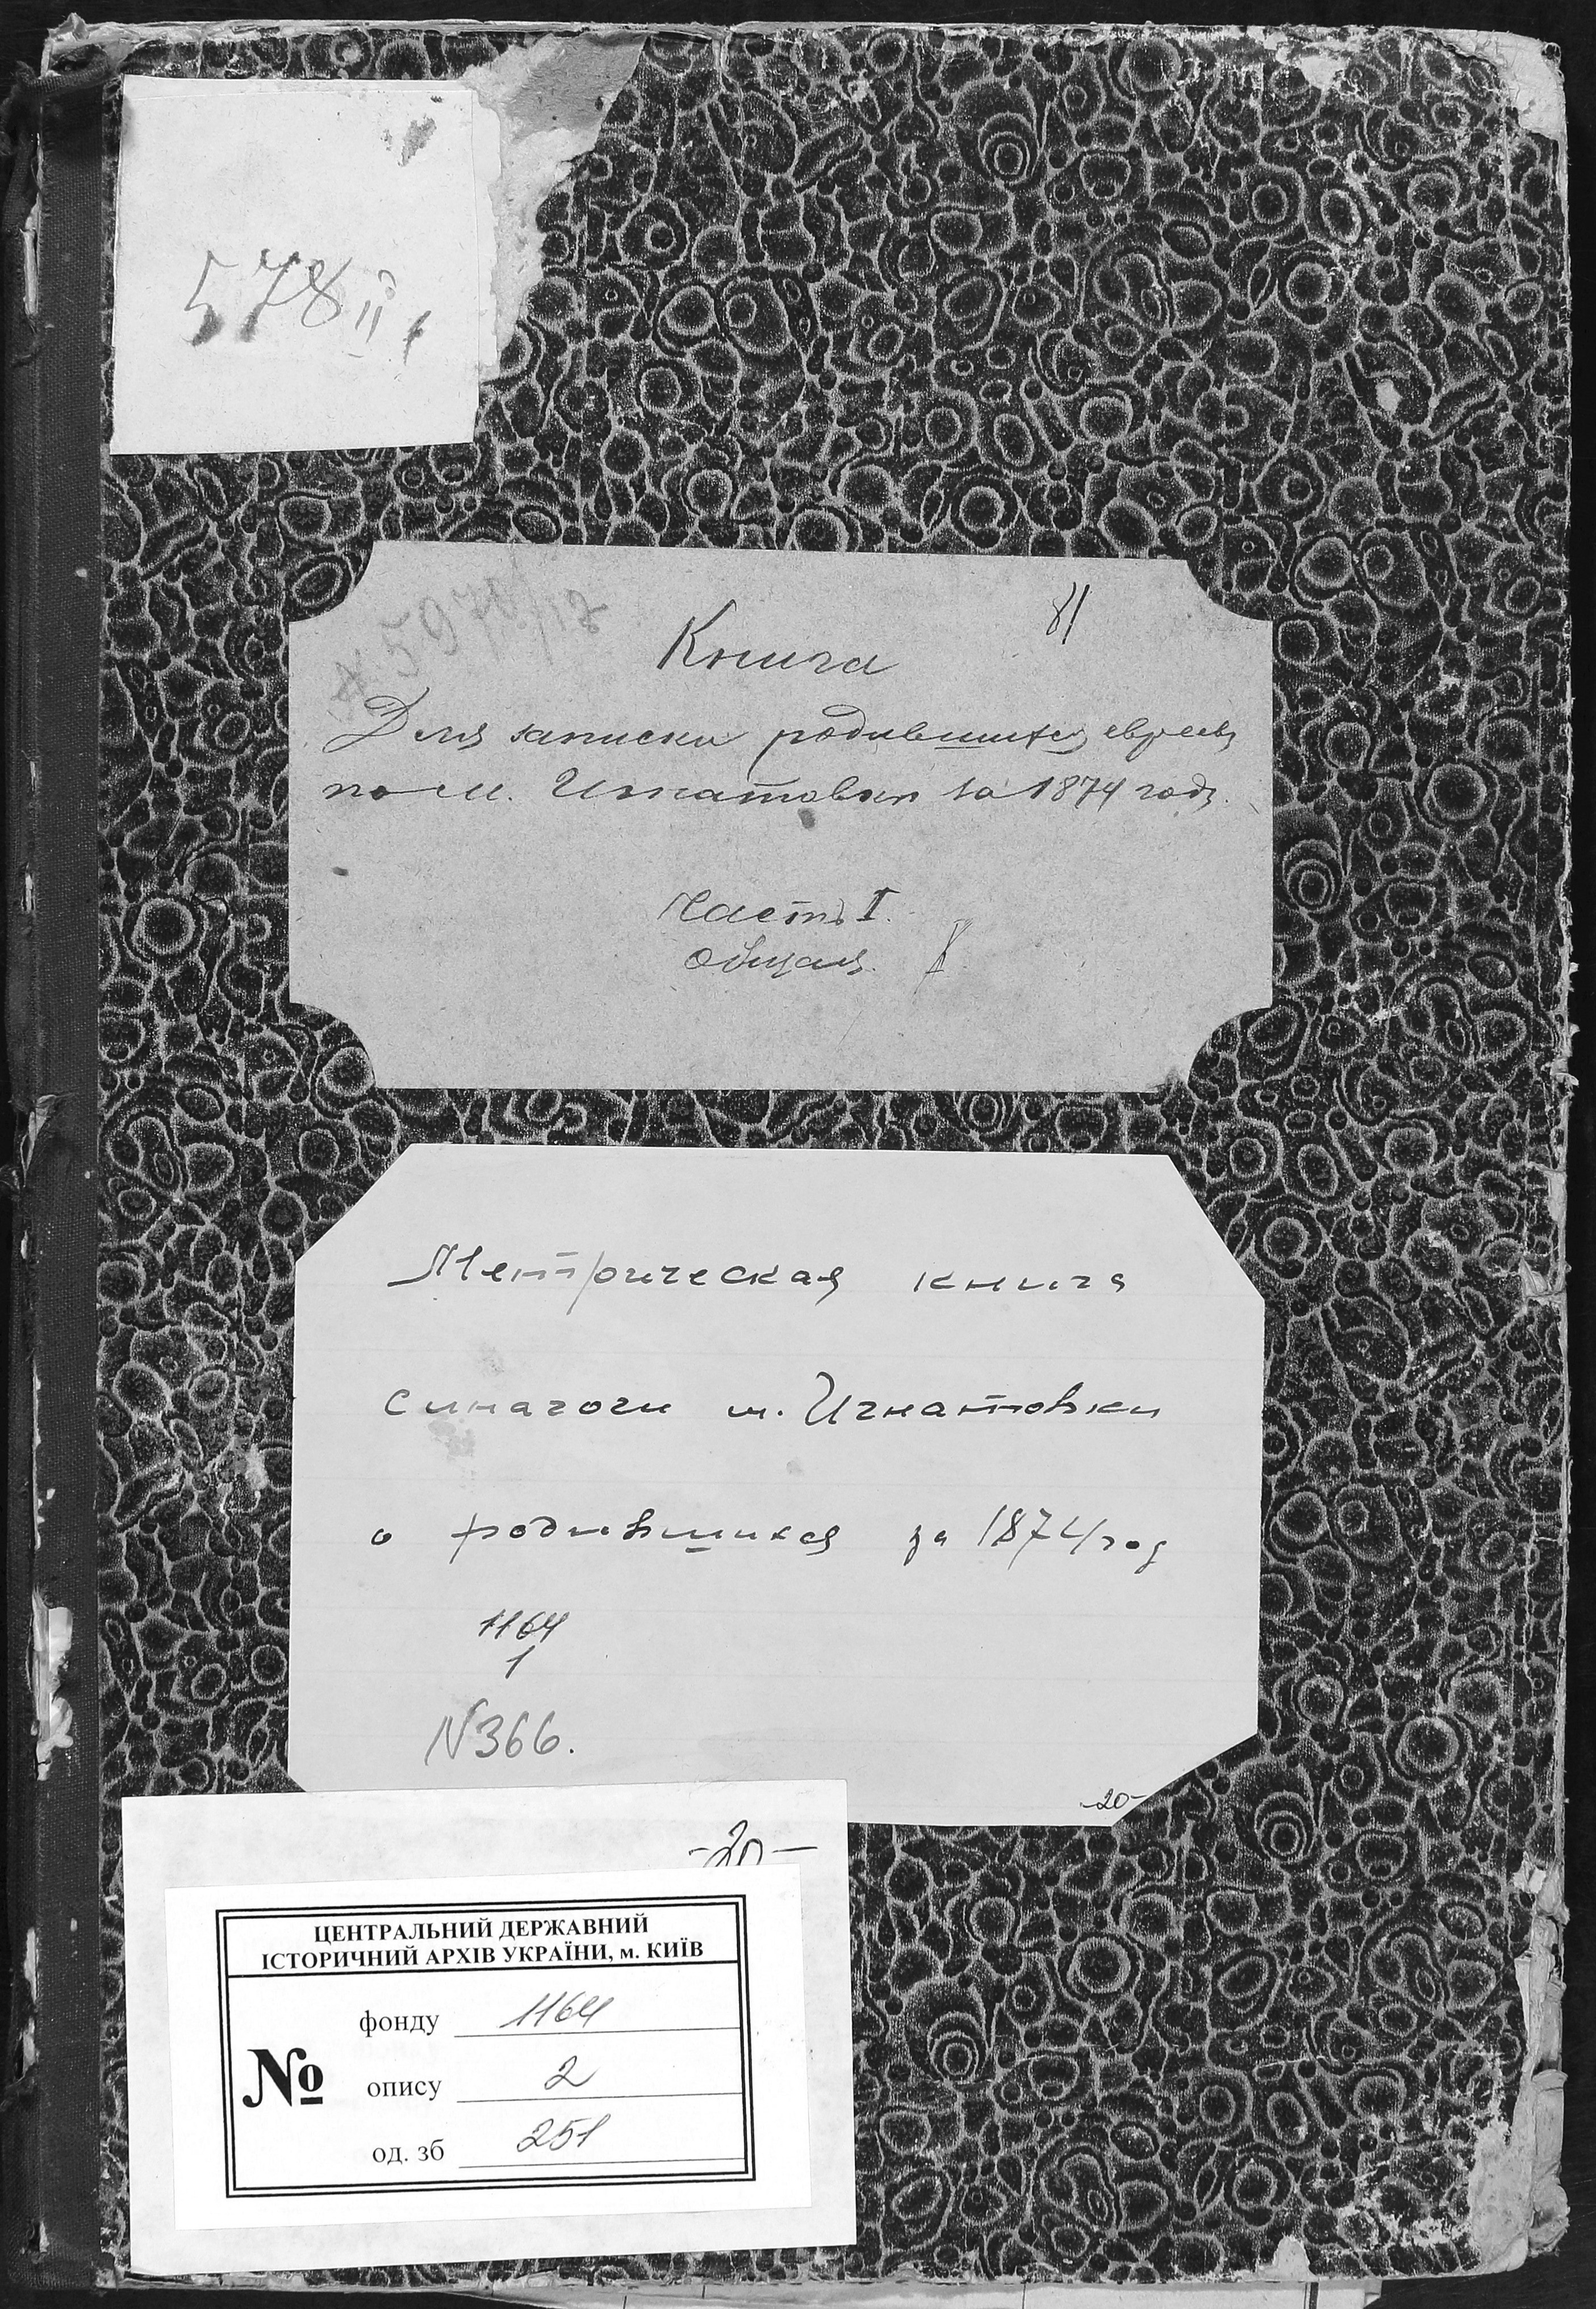 578 II
81
Книга
Для записки родившихся евреевъ
по м. Игнатовки за 1874 годъ.
Часть I.
Общая.
Метрическая книга
синагоги м. Игнатовки
о родившихся за 1874 год
1164
1
N 366.
-20-
-20-
ЦЕНТРАЛЬНИЙ ДЕРЖАВНИЙ
ІСТОРИЧНИЙ АРХІВ УКРАЇНИ, м. КИЇВ
№
фонду 1164
опису 2
од. зб 251